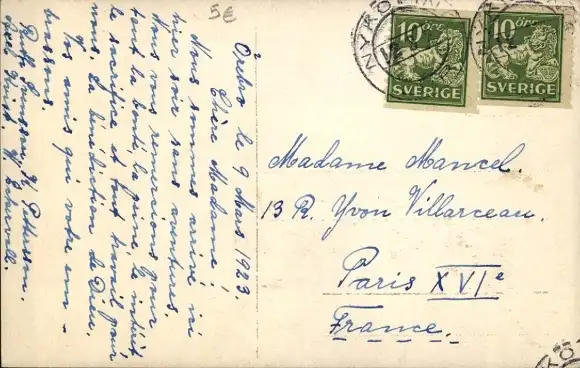 5€
Örebro le 9 Mars 1923.
Chère Madame!
Nous sommes arrivé ici
hier soir sans aventures.
Nous vous remercions pour
tout la bonté, la peine, le intérêt
le sacrifice et tout travail pour
nous. La bénédiction de Dieu.
Vos amis qui votre em-
brassons.
Pettersson.
10 ÖRE
SVERIGE
10 ÖRE
SVERIGE
Madame Mancel.
13 R. Yvon Villarceau.
Paris XVIe
France.